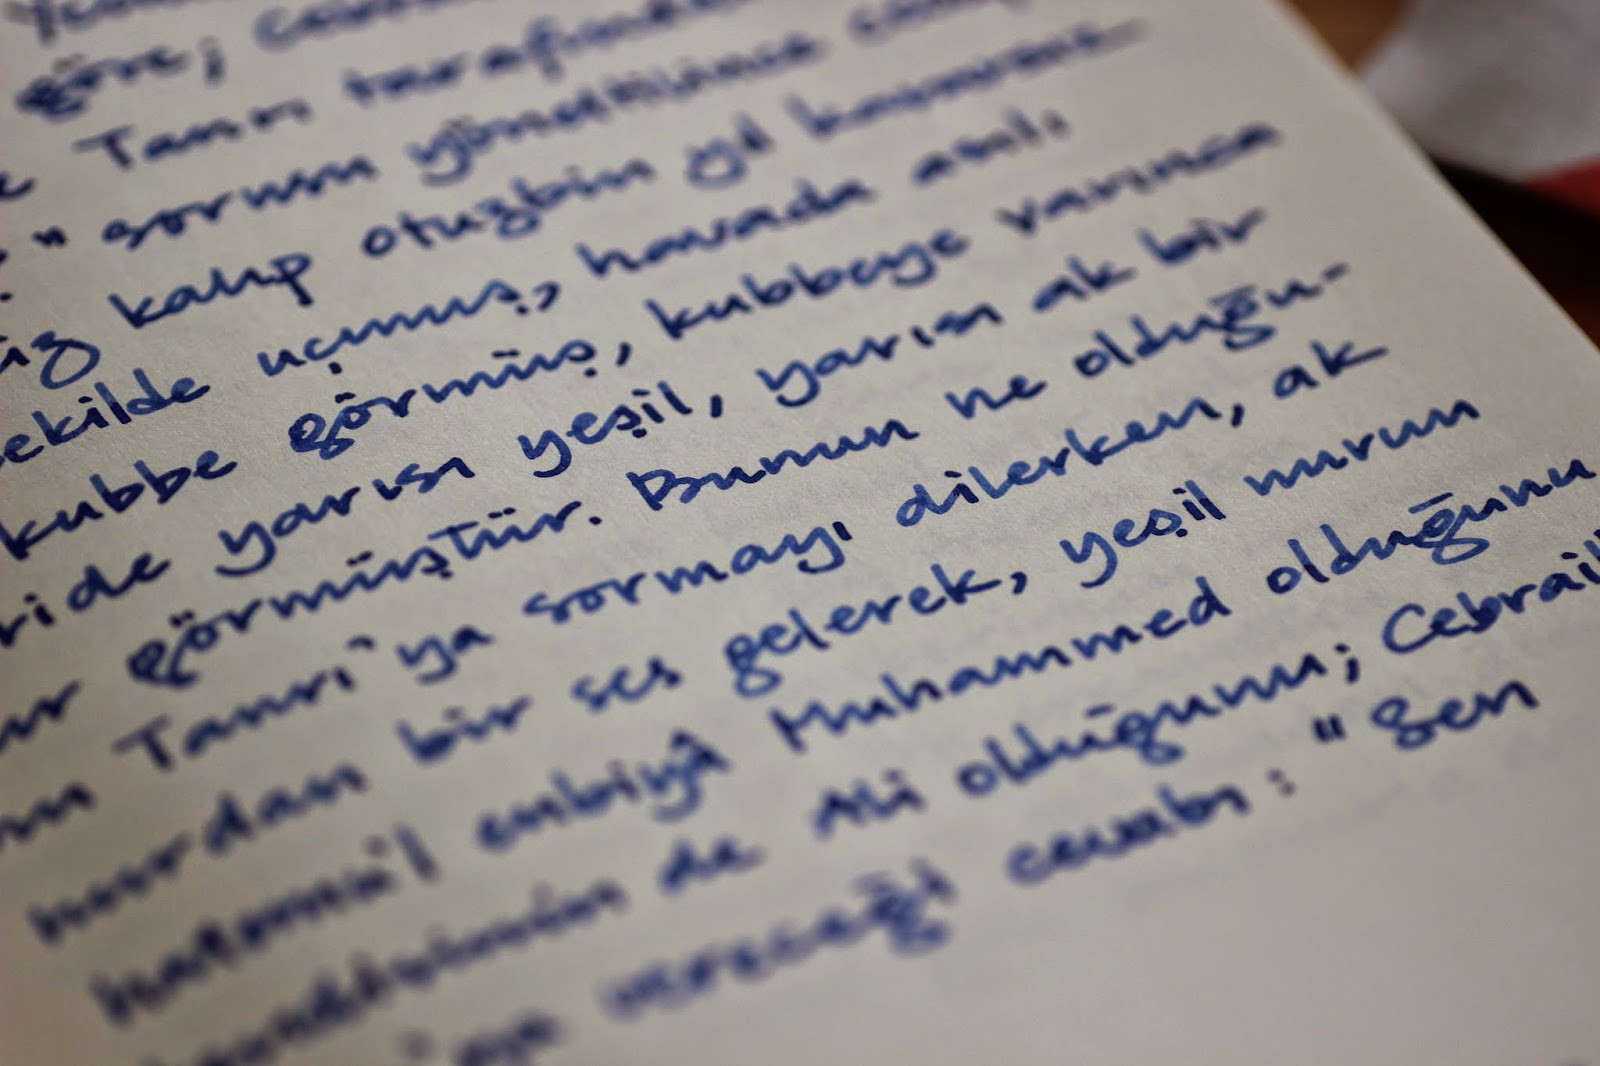 göre;
Tanrı tarafından
" sorusu yönelttiğince
kalıp otuzbin yıl
ekilde uçmuş, havada asılı
kubbe görmüş, kubbeye varınca
ride yarısı yeşil, yarısı ak bir
ur görmüştür. Bunun ne olduğu-
Tanrı'ya sormayı dilerken, ak
nurdan bir ses gelerek, yeşil nurun
hatemü'l enbiyâ Muhammed olduğunu
de Ali olduğunu; Cebrail
vereceği cevabı: " Sen